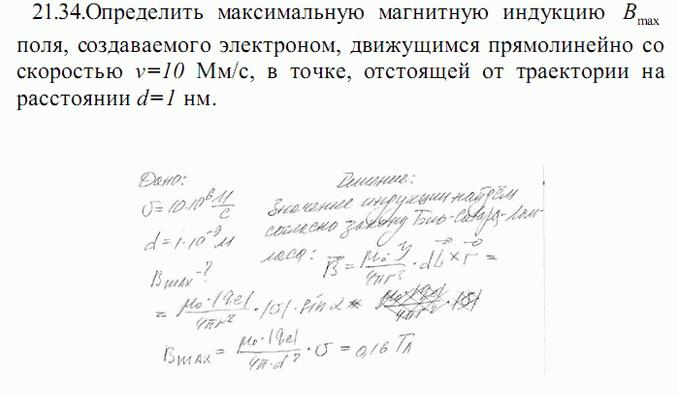 21.34.Определить максимальную магнитную индукцию B_max
поля, создаваемого электроном, движущимся прямолинейно со
скоростью v=10 Мм/с, в точке, отстоящей от траектории на
расстоянии d=1 нм.
Дано:
υ=10·10⁶ м/с
d=1·10⁻⁹ м
Bmax-?
Решение:
Значение индукции найдём
согласно закону Био-Савара-Лап-
ласа: B = μ₀·J/4πr³ · dL × r =
= μ₀·|qe|/4πr² · |υ|·sin α
Bmax = μ₀·|qe|/4π·d² · υ = 0,16 Тл